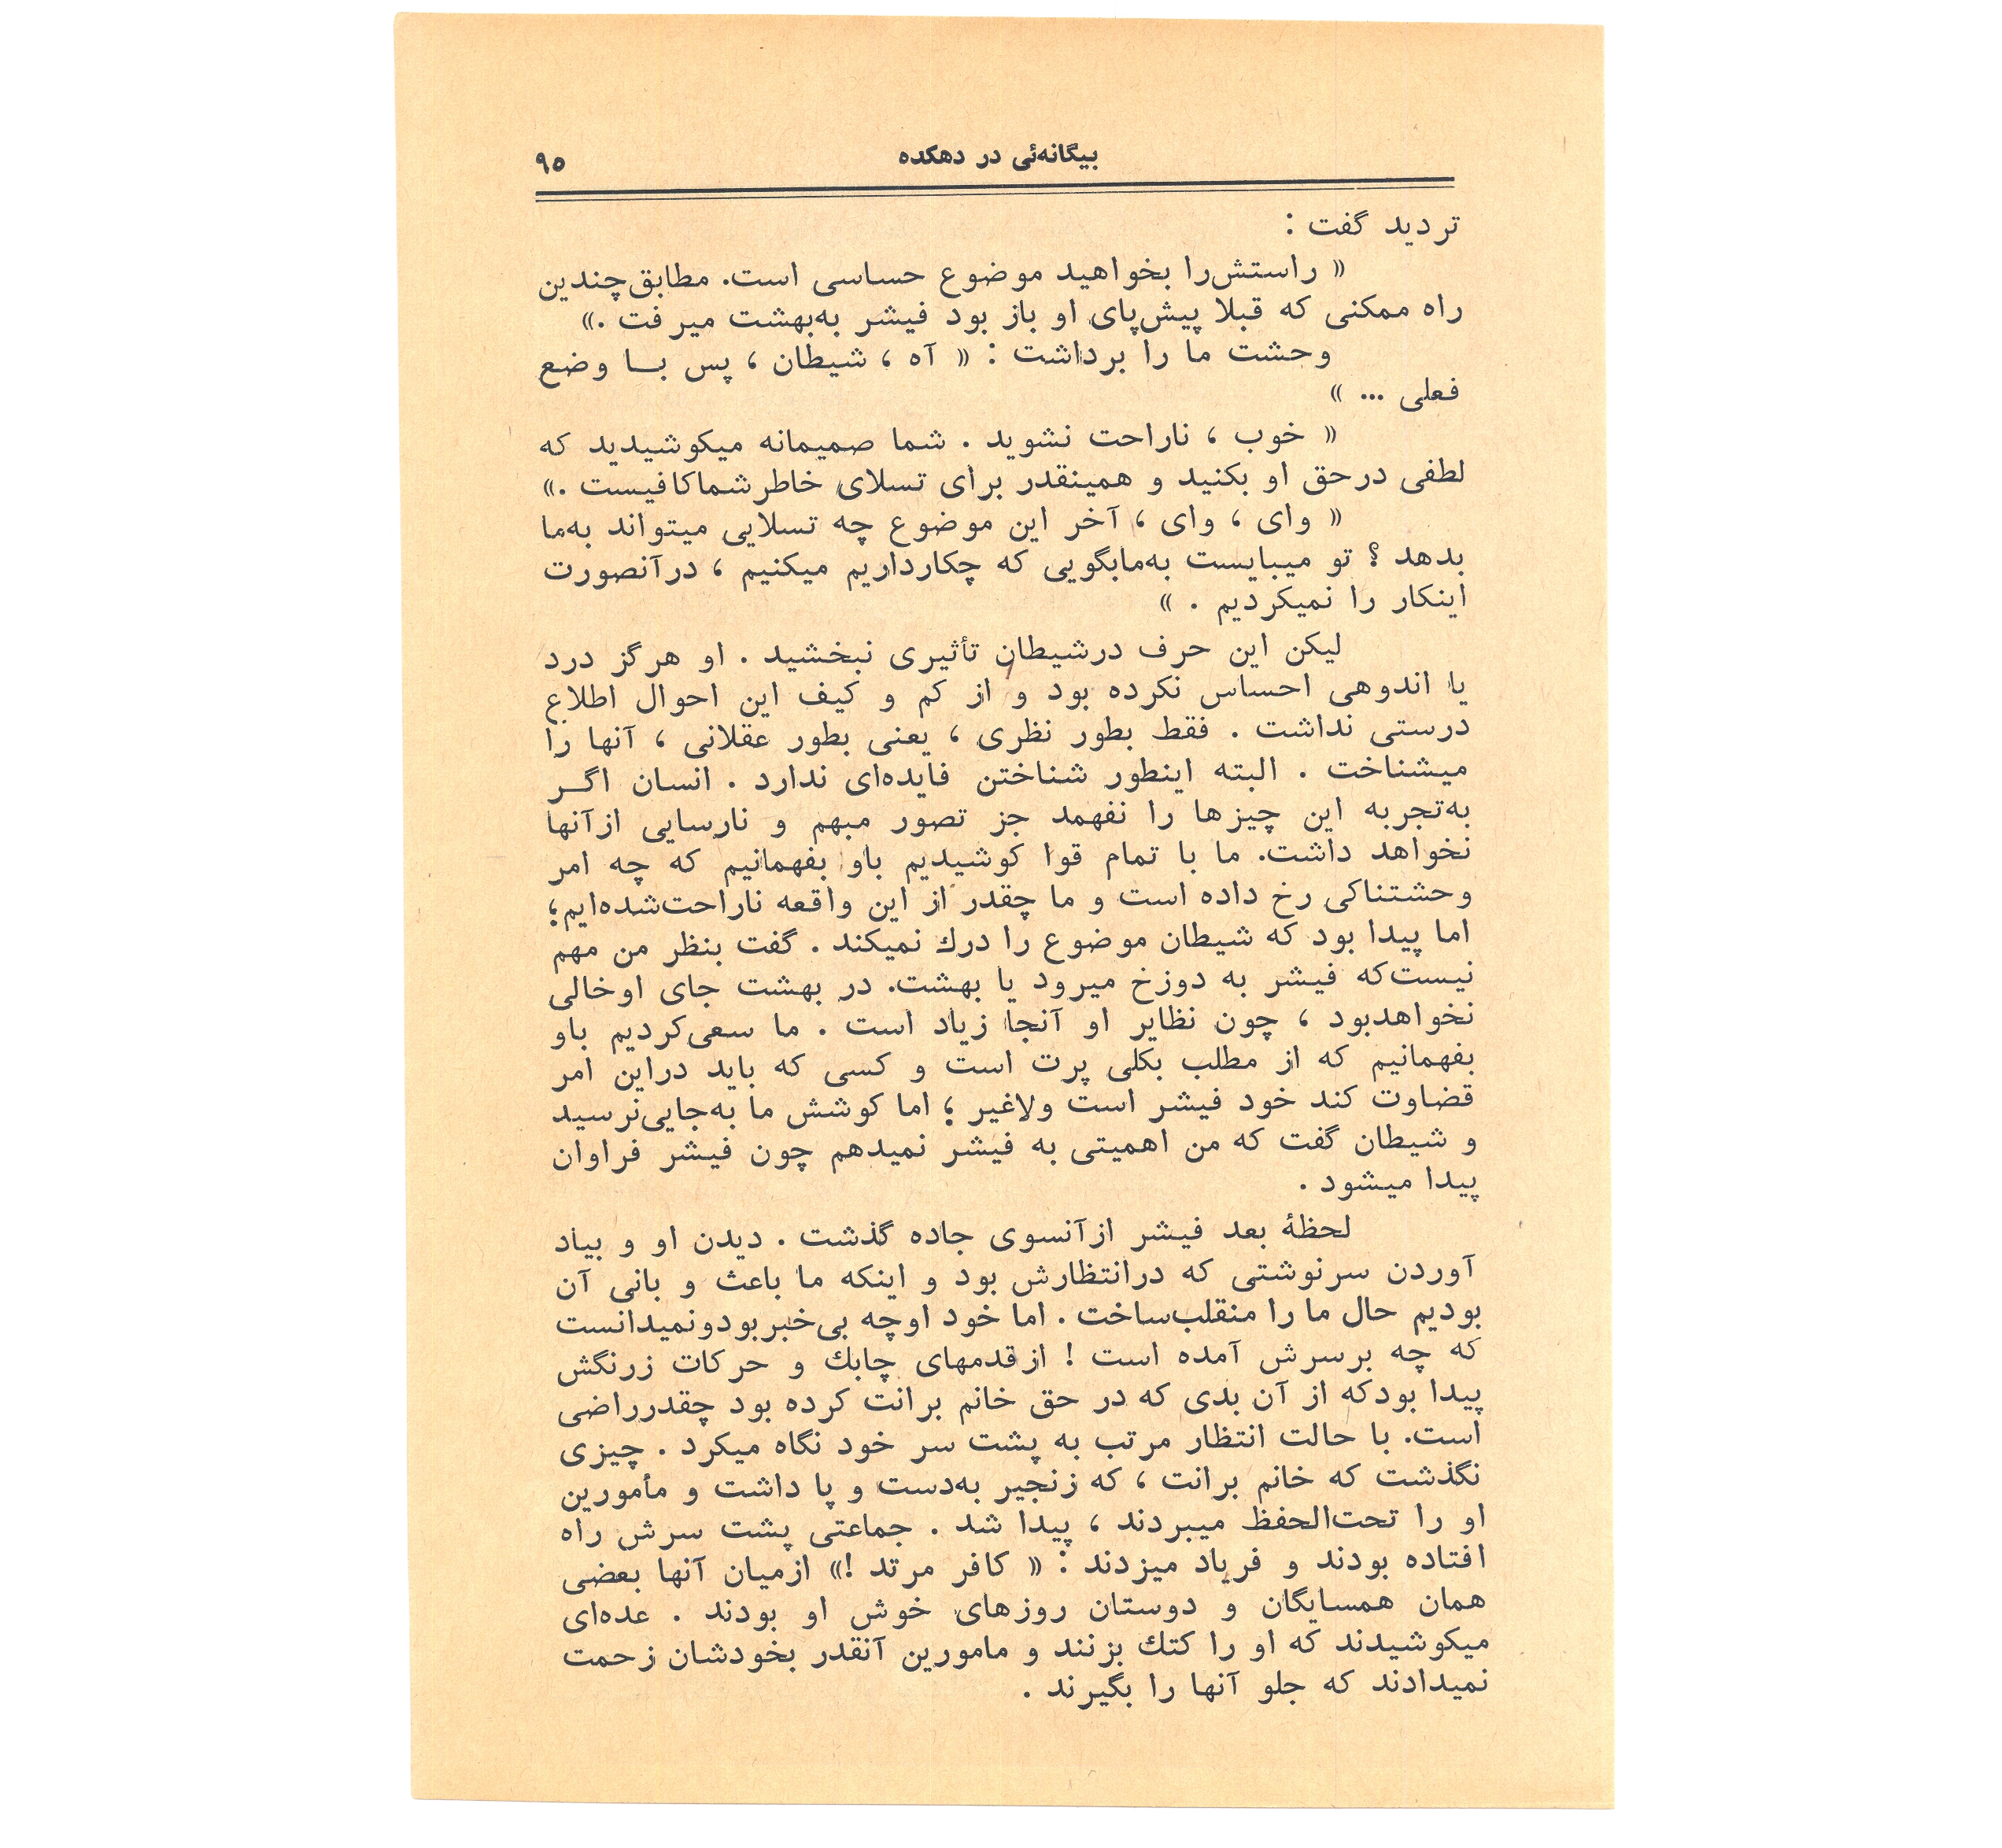 بیگانه‌ئی در دهکده ۹۵
تردید گفت :
« راستش‌را بخواهید موضوع حساسی است. مطابق‌چندین
راه ممکنی که قبلا پیش‌پای او باز بود فیشر به‌بهشت میرفت .»
وحشت ما را برداشت : « آه ، شیطان ، پس بــا وضع
فعلی ... »
« خوب ، ناراحت نشوید . شما صمیمانه میکوشیدید که
لطفی درحق او بکنید و همینقدر برای تسلای خاطرشماکافیست .»
« وای ، وای ، آخر این موضوع چه تسلایی میتواند به‌ما
بدهد ؟ تو میبایست به‌مابگویی که چکارداریم میکنیم ، درآنصورت
اینکار را نمیکردیم . »
لیکن این حرف درشیطان تأثیری نبخشید . او هرگز درد
یا اندوهی احساس نکرده بود و از کم و کیف این احوال اطلاع
درستی نداشت . فقط بطور نظری ، یعنی بطور عقلانی ، آنها را
میشناخت . البته اینطور شناختن فایده‌ای ندارد . انسان اگــر
به‌تجربه این چیزها را نفهمد جز تصور مبهم و نارسایی ازآنها
نخواهد داشت. ما با تمام قوا کوشیدیم باو بفهمانیم که چه امر
وحشتناکی رخ داده است و ما چقدر از این واقعه ناراحت‌شده‌ایم؛
اما پیدا بود که شیطان موضوع را درك نمیکند . گفت بنظر من مهم
نیست‌که فیشر به دوزخ میرود یا بهشت. در بهشت جای اوخالی
نخواهدبود ، چون نظایر او آنجا زیاد است . ما سعی‌کردیم باو
بفهمانیم که از مطلب بکلی پرت است و کسی که باید دراین امر
قضاوت کند خود فیشر است ولاغیر ؛ اما کوشش ما به‌جایی‌نرسید
و شیطان گفت که من اهمیتی به فیشر نمیدهم چون فیشر فراوان
پیدا میشود .
لحظهٔ بعد فیشر ازآنسوی جاده گذشت . دیدن او و بیاد
آوردن سرنوشتی که درانتظارش بود و اینکه ما باعث و بانی آن
بودیم حال ما را منقلب‌ساخت . اما خود اوچه بی‌خبربودونمیدانست
که چه برسرش آمده است ! ازقدمهای چابك و حرکات زرنگش
پیدا بودکه از آن بدی که در حق خانم برانت کرده بود چقدرراضی
است. با حالت انتظار مرتب به پشت سر خود نگاه میکرد . چیزی
نگذشت که خانم برانت ، که زنجیر به‌دست و پا داشت و مأمورین
او را تحت‌الحفظ میبردند ، پیدا شد . جماعتی پشت سرش راه
افتاده بودند و فریاد میزدند : « کافر مرتد !» ازمیان آنها بعضی
همان همسایگان و دوستان روزهای خوش او بودند . عده‌ای
میکوشیدند که او را کتك بزنند و مامورین آنقدر بخودشان زحمت
نمیدادند که جلو آنها را بگیرند .